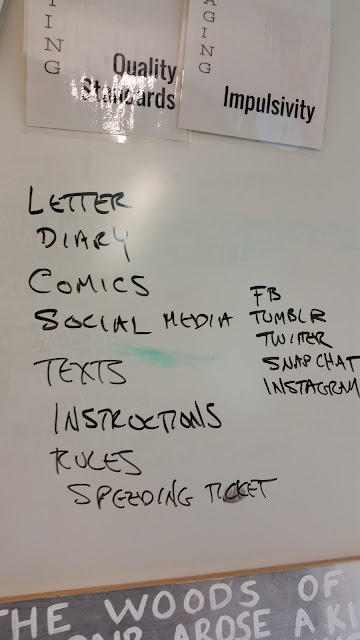 ING
Quality
Standards
AGING
Impulsivity
LETTER
DIARY
COMICS
SOCIAL MEDIA
FB
TUMBLR
TWITTER
SNAPCHAT
INSTAGRAM
TEXTS
INSTRUCTIONS
RULES
SPEEDING TICKET
THE WOODS OF
AROSE A